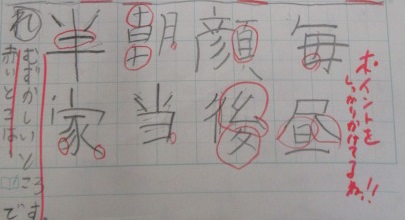 ポイントを
しっかりかけてるね!!
毎昼
顔後
朝当
半家
れ
赤いところは
むずかしいところです。